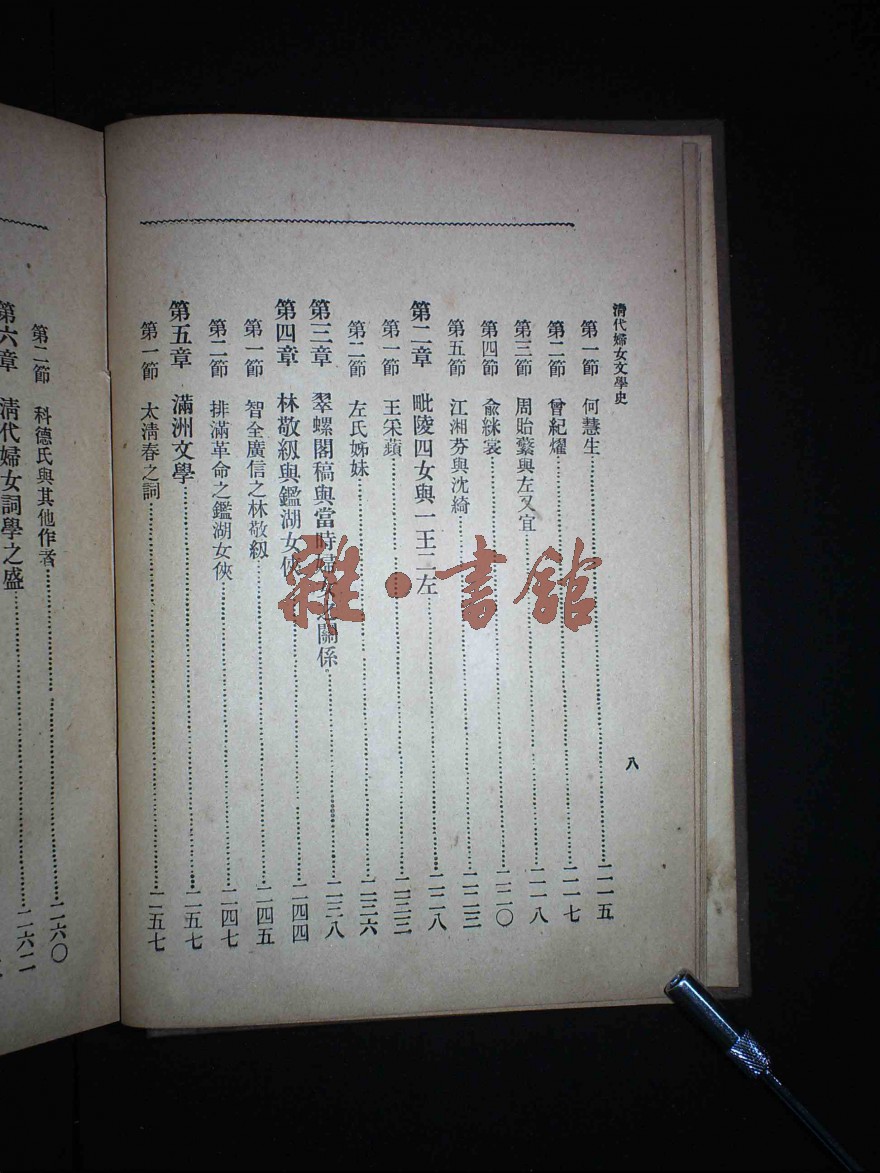 清代婦女文學史
八
第一節　何慧生……二一五
第二節　曾紀燿……二一七
第三節　周貽蘩與左又宜……二一八
第四節　俞綝裳……二二〇
第五節　江湘芬與沈綺……二二三
第二章　毗陵四女與一王二左……二二八
第一節　王采蘋……二三三
第二節　左氏姊妹……二三六
第三章　翠螺閣稿與當時婦女之關係……二三八
第四章　林敬紉與鑑湖女俠……二四四
第一節　智全廣信之林敬紉……二四五
第二節　排滿革命之鑑湖女俠……二四七
第五章　滿洲文學……二五七
第一節　太清春之詞……二五七
第二節　科德氏與其他作者……二六〇
第六章　清代婦女詞學之盛……二六二
雜·書館